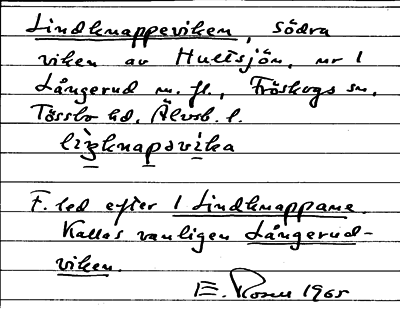 Lindknappeviken, södra
viken av Hultsjön, nr 1
Långerud m. fl., Fröskogs sn,
Tössbo hd, Älvsb. l.
F. led efter 1 Lindknappane.
Kallas vanligen Långerud-
viken.
E. Rosen 1965